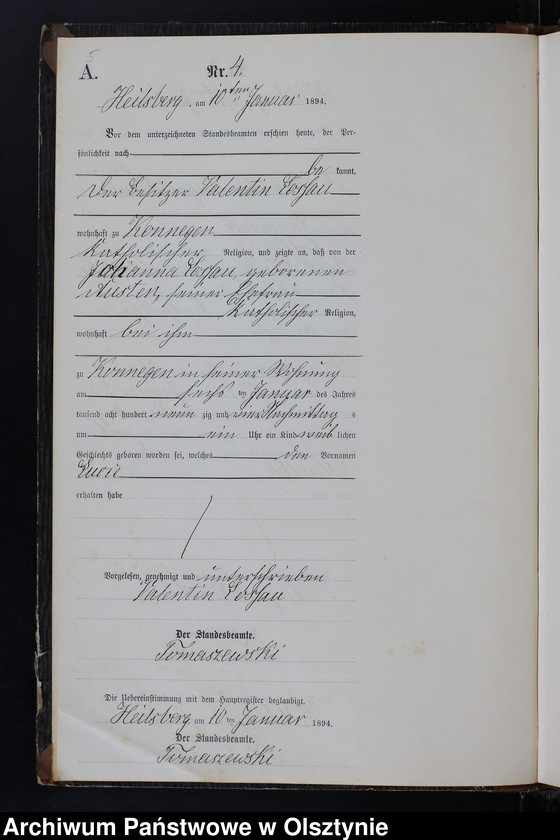 5
A. Nr. 4.
Heilsberg, am 10ten Januar 1894.
Vor dem unterzeichneten Standesbeamten erschien heute, der Per-
sönlichkeit nach
be kannt,
der Besitzer Valentin Lossau
wohnhaft zu Konnegen
katholischer Religion, und zeigte an, daß von der
Johanna Lossau, geborenen
Austen, seiner Ehefrau
katholischer Religion,
wohnhaft bei ihm
zu Konnegen in seiner Wohnung
am sechs ten Januar des Jahres
tausend acht hundert neun zig und vier Nachmittag s
um ein Uhr ein Kind weib lichen
Geschlechts geboren worden sei, welches den Vornamen
Lucie
erhalten habe
Vorgelesen, genehmigt und unterschrieben
Valentin Lossau
Der Standesbeamte.
Tomaszewski
Die Uebereinstimmung mit dem Hauptregister beglaubigt.
Heilsberg, am 10 ten Januar 1894.
Der Standesbeamte.
Tomaszewski
Archiwum Państwowe w Olsztynie